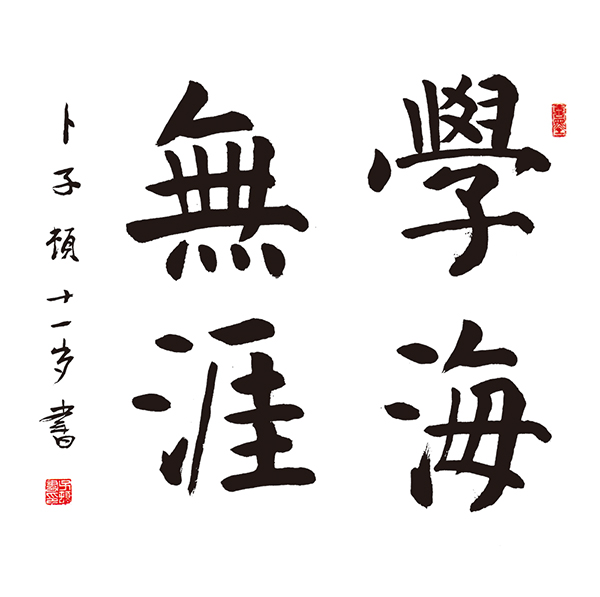 學海
無涯
卜子頎十一岁書